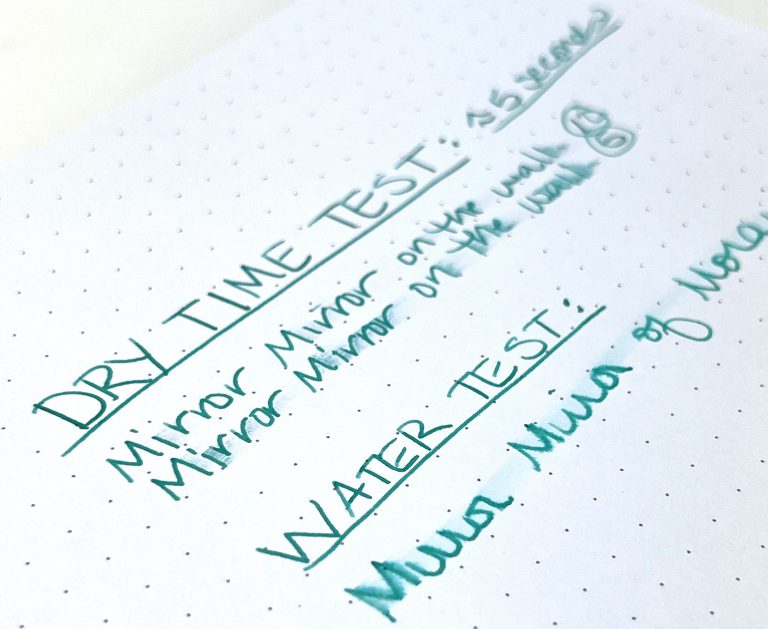 DRY TIME TEST: ≈5 seconds
Mirror Mirror on the wall
Mirror Mirror on the wall
WATER TEST:
Mirror Mirror of